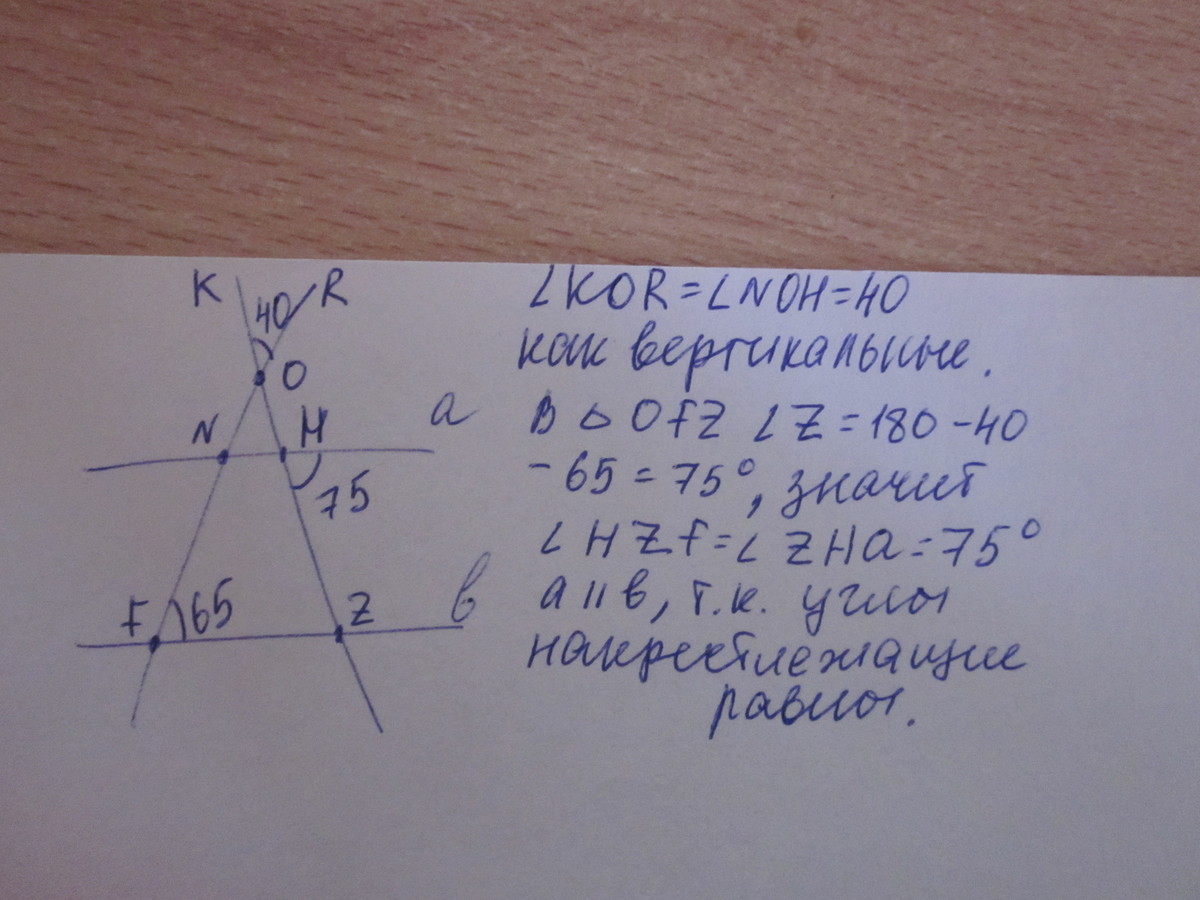 K 40 R
O
N H a
75
F 65 Z в
∠KOR=∠NOH=40
как вертикальные.
В △ OFZ ∠Z=180-40
-65=75°, значит
∠HZF=∠ZHa=75°
a॥в, т.к. углы
накрестлежащие
равны.